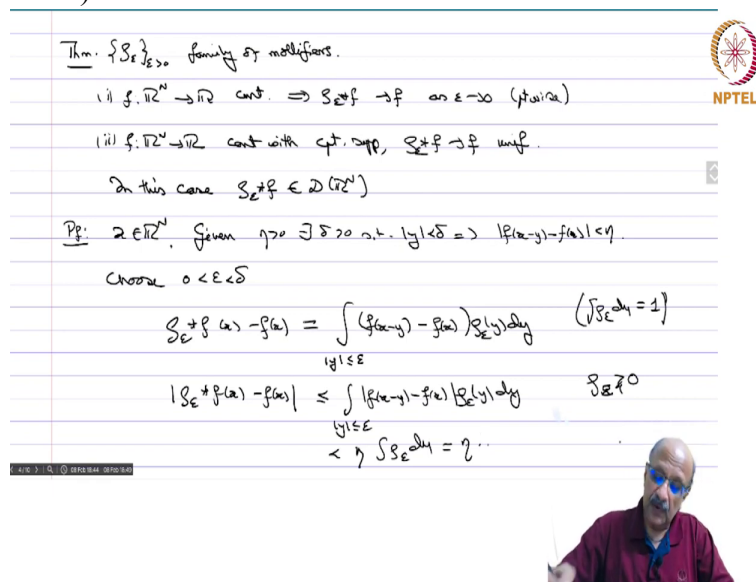 Thm. {ρ_ε}_{ε>0} family of mollifiers.
NPTEL
(i) f: ℝ^N → ℝ cont. ⇒ ρ_ε * f → f as ε→0 (ptwise)
(ii) f: ℝ^N → ℝ cont with cpt. supp, ρ_ε * f → f unif.
In this case ρ_ε * f ∈ D(ℝ^N)
Pf: x ∈ ℝ^N. Given η>0 ∃ δ>0 s.t. |y|<δ ⇒ |f(x-y) - f(x)| < η.
Choose 0 < ε < δ
ρ_ε * f (x) - f(x) = ∫_{|y|≤ε} (f(x-y) - f(x)) ρ_ε(y) dy (∫ρ_ε dy = 1)
|ρ_ε * f(x) - f(x)| ≤ ∫_{|y|≤ε} |f(x-y) - f(x)| ρ_ε(y) dy ρ_ε ≥ 0
< η ∫ρ_ε dy = η
4/10